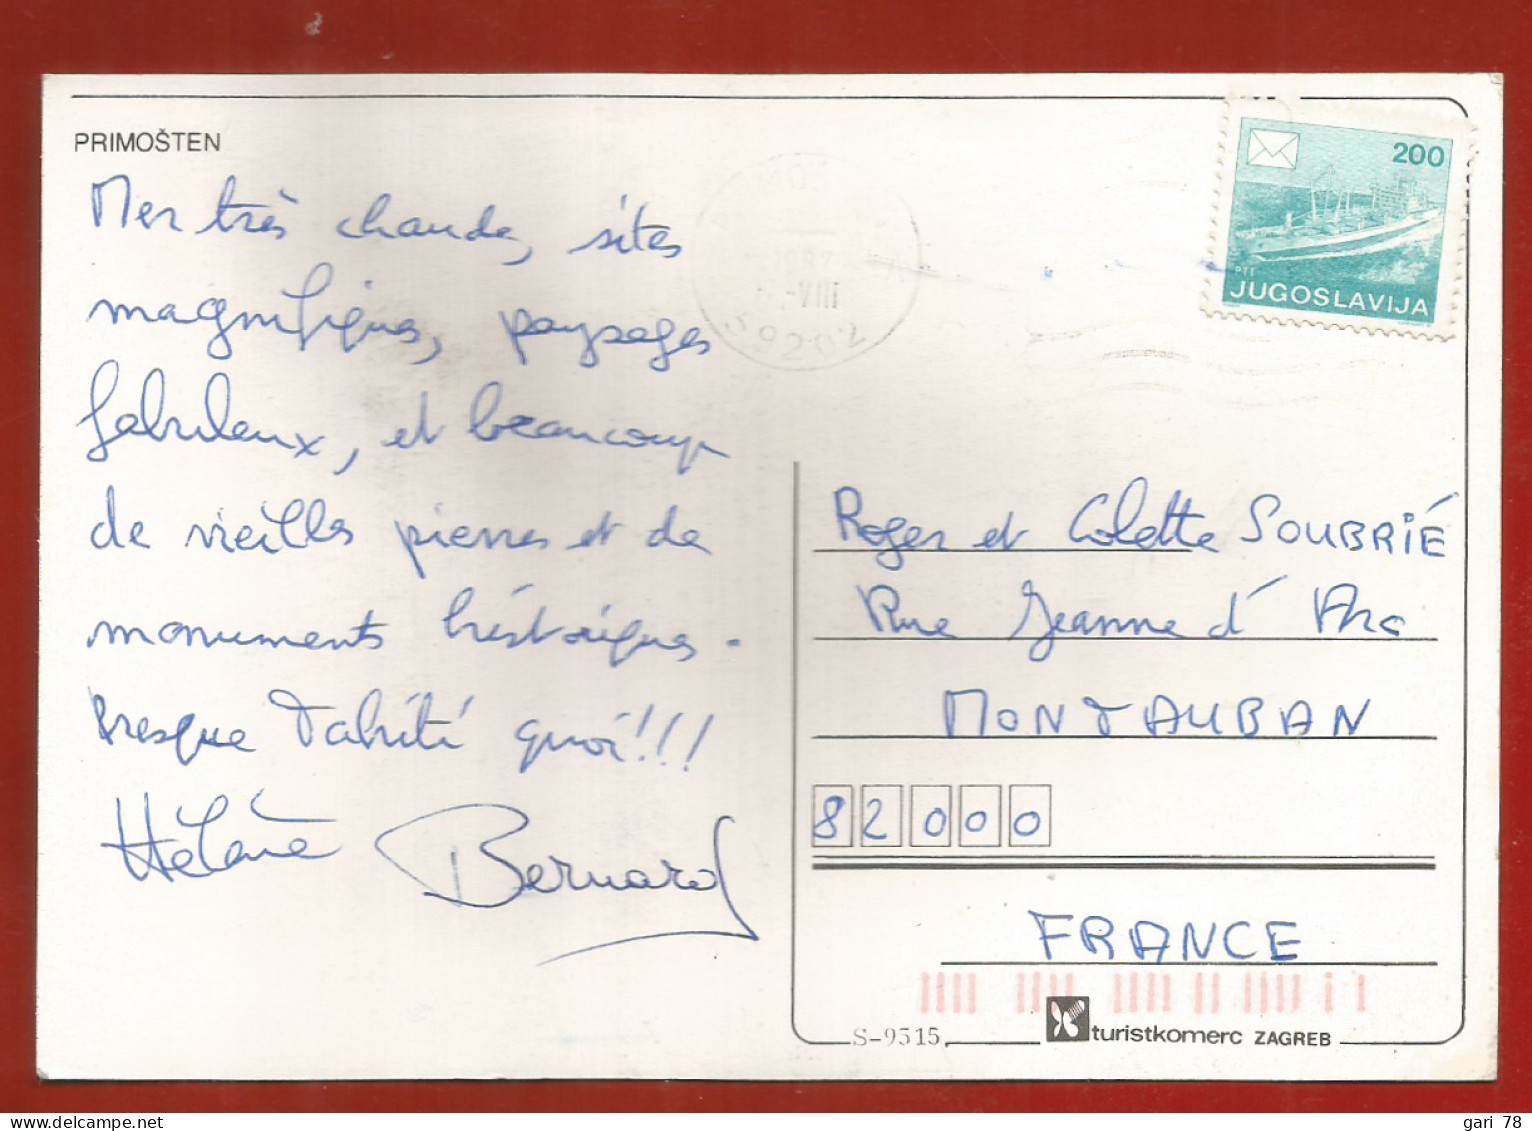 PRIMOŠTEN
Mer très chaude, sites
magnifiques, paysages
fabuleux, et beaucoup
de vieilles pierres et de
monuments historiques.
Presque Tahiti quoi!!!
Hélène Bernard
1987
-VIII
59202
200
PTT
JUGOSLAVIJA
Roger et Colette SOUBRIÉ
Rue Jeanne d'Arc
MONTAUBAN
82000
FRANCE
S-9315
turistkomerc ZAGREB
gari 78